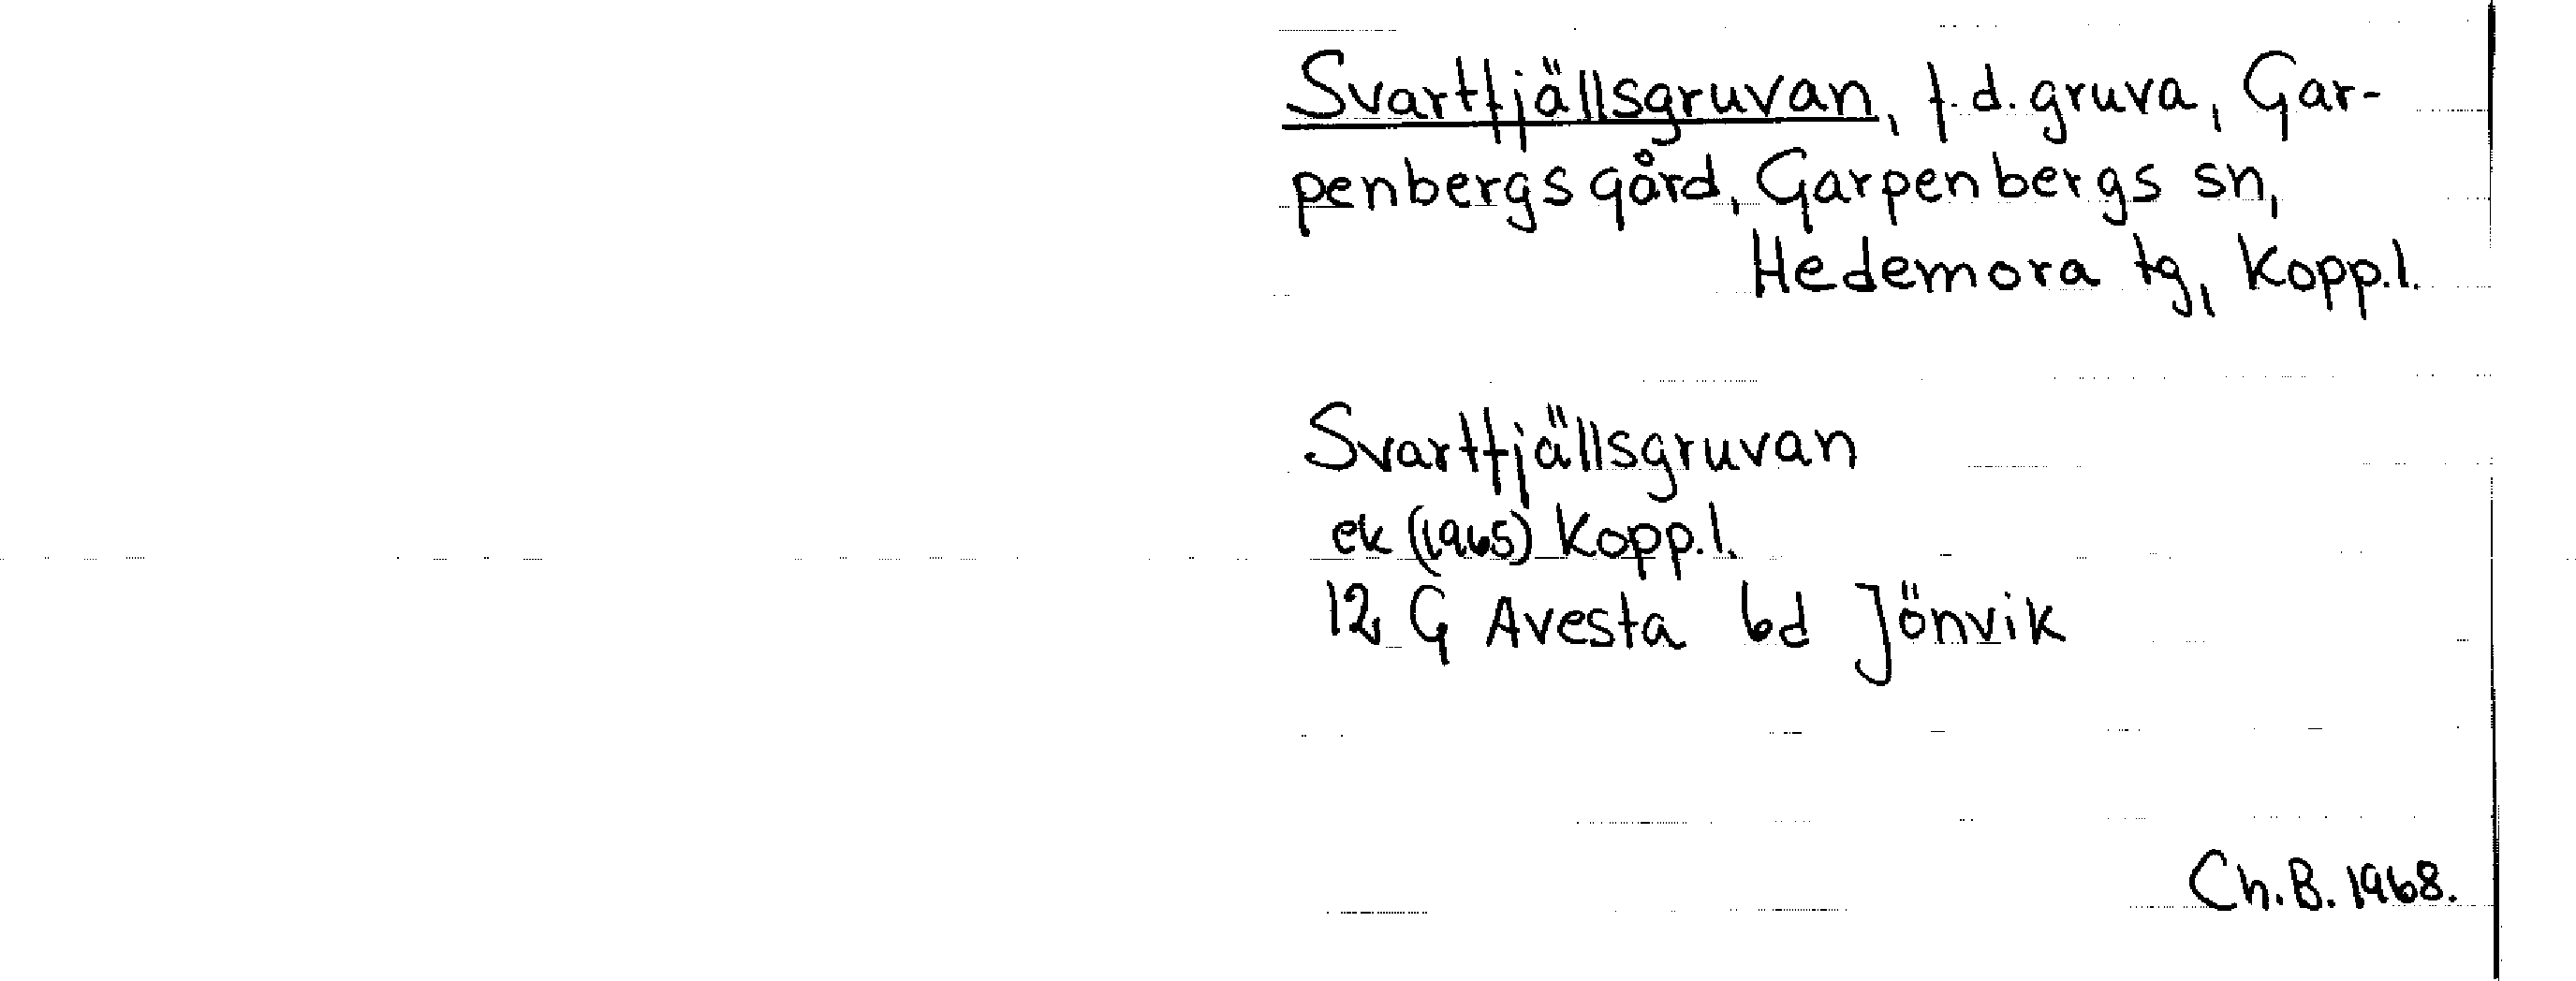 Svartfjällsgruvan, f.d. gruva, Gar-
penbergs gård, Garpenbergs sn,
Hedemora tg, Kopp.l.
Svartfjällsgruvan
ek (1965) Kopp.l.
12 G Avesta 6d Jönvik
Ch.B. 1968.